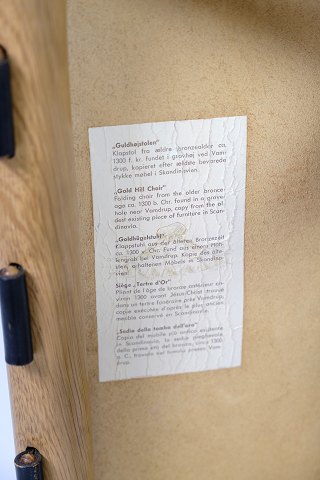 „Guldhøjstolen"
Klapstol fra ældre bronzealder ca.
1300 f. kr. fundet i gravhøj ved Vam-
drup, kopieret efter ældste bevarede
stykke møbel i Skandinavien.
„Gold Hill Chair"
Folding chair from the older bronce-
age ca. 1300 b. Chr. found in a grave-
hole near Vamdrup, copy from the ol-
dest existing piece of furniture in Scan-
dinavia.
„Goldhügelstuhl"
Klappstuhl aus der älteren Bronzezeit
ca. 1300 v. Chr. Fund aus einem
bei Vamdrup. Kopie des älte-
sten, erhaltenen Möbels in Skandina-
vien.
Siège „Tertre d'Or"
Pliant de l'âge de bronze antérieur
1300 avant Jésus-Christ trouvé
dans un tertre funéraire près Vamdrup,
copie exécutée d'après le plus ancien
meuble conservé en Scandinavie.
„Sedia della tomba dell'oro"
Copia del mobile più antico esistente
in Scandinavia, la sedia pieghevole
della prima era del bronzo, circa 1300
a. C. trovata nel tumulo presso Vam-
drup.